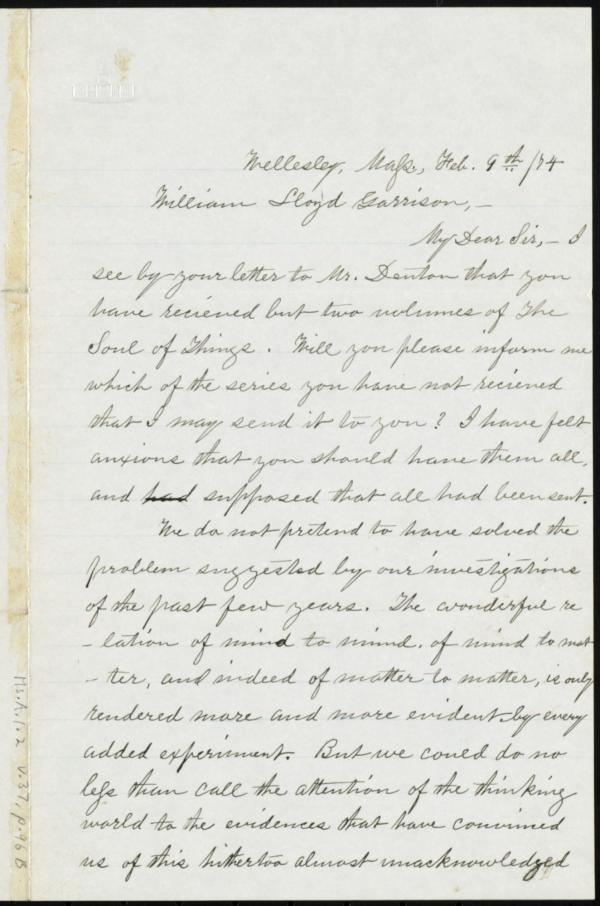 Wellesley, Mass., Feb. 9th /74
William Lloyd Garrison, —
My Dear Sir, — I
see by your letter to Mr. Denton that you
have recieved but two volumes of The
Soul of Things. Will you please inform me
which of the series you have not recieved
that I may send it to you? I have felt
anxious that you should have them all,
and had supposed that all had been sent.
We do not pretend to have solved the
problem suggested by our investigations
of the past few years. The wonderful re
- lation of mind to mind, of mind to mat
- ter, and indeed of matter to matter, is only
rendered more and more evident by every
added experiment. But we could do no
less than call the attention of the thinking
world to the evidences that have convinced
us of this hittertoo almost unacknowledged
Ms.A.1.2 v.37, p.96B